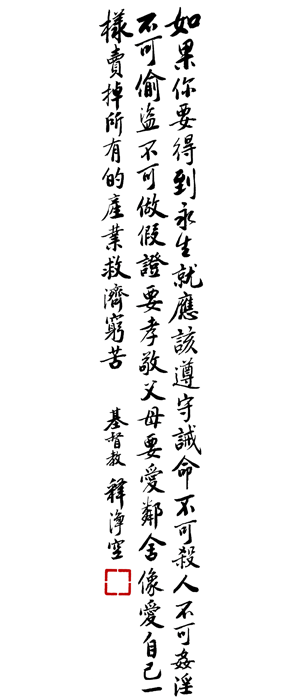 如果你要得到永生就應該遵守誡命不可殺人不可姦淫
不可偷盜不可做假證要孝敬父母要愛鄰舍像愛自己一
樣賣掉所有的產業救濟窮苦
基督教 釋淨空